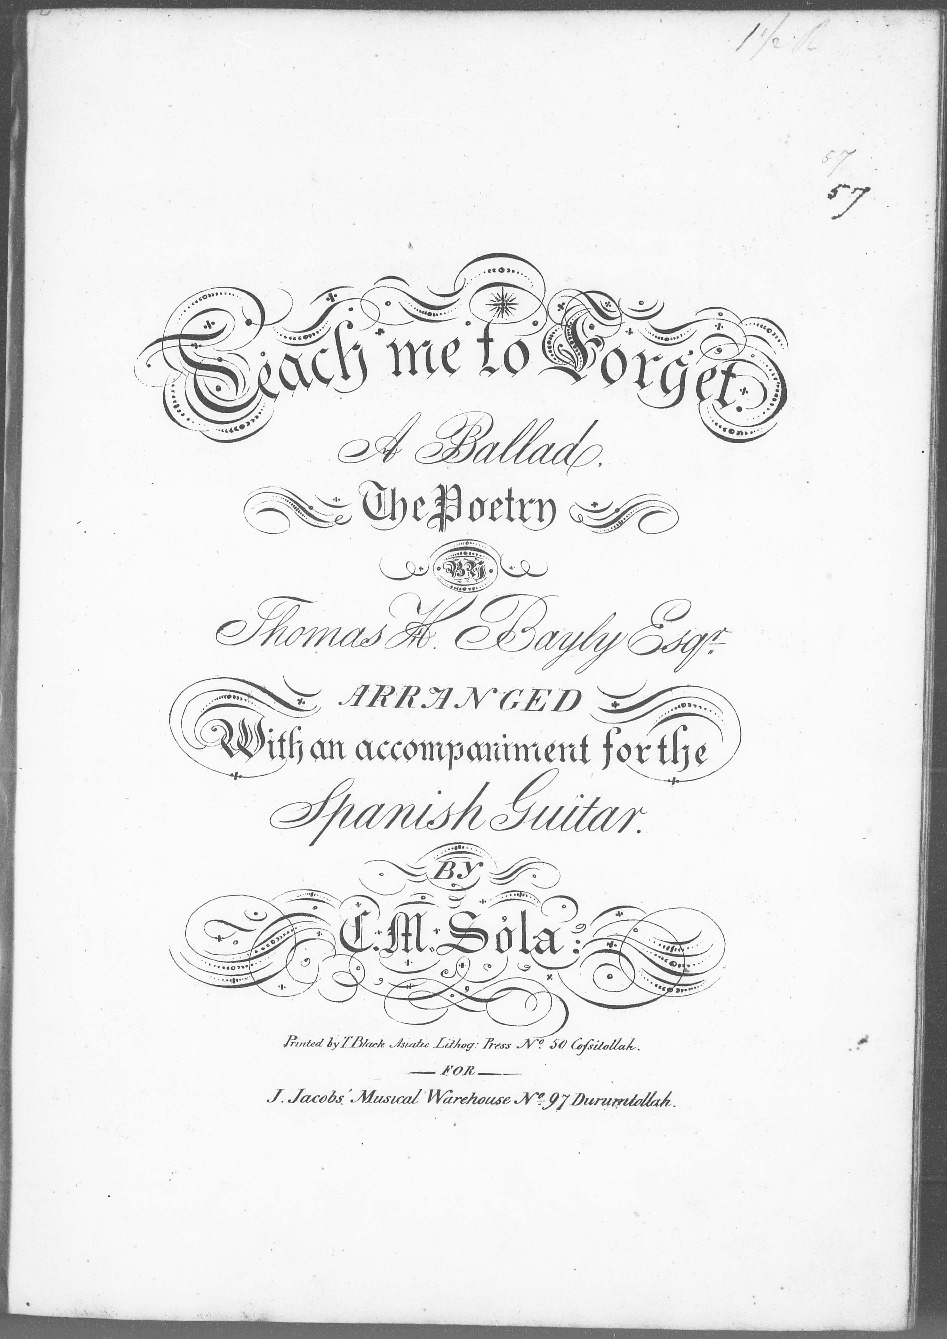 1 1/2 R
57
57
Teach me to Forget.
A Ballad.
The Poetry
BY
Thomas H. Bayly Esqr.
ARRANGED
With an accompaniment for the
Spanish Guitar.
BY
C. M. Sola:
Printed by T Black Asiatic Lithog: Press No. 50 Cofsitollah.
FOR
J. Jacobs' Musical Warehouse No. 97 Durumtollah.